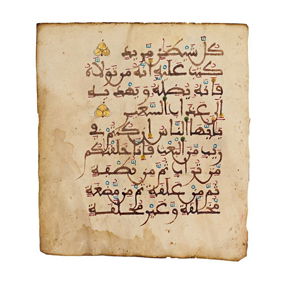 كل شيطن مريد
كتب عليه أنه من تولاه
فأنه يضله ويهديه
إلى عذاب السعير
يأيها الناس إن كنتم في
ريب من البعث فإنا خلقنكم
من تراب ثم من نطفة
ثم من علقة ثم من مضغة
مخلقة وغير مخلقة